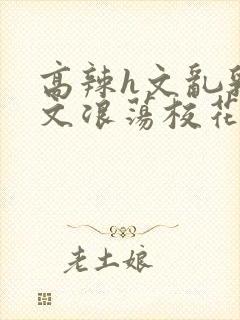 高辣h文乱乳
文浪荡校花
老土娘